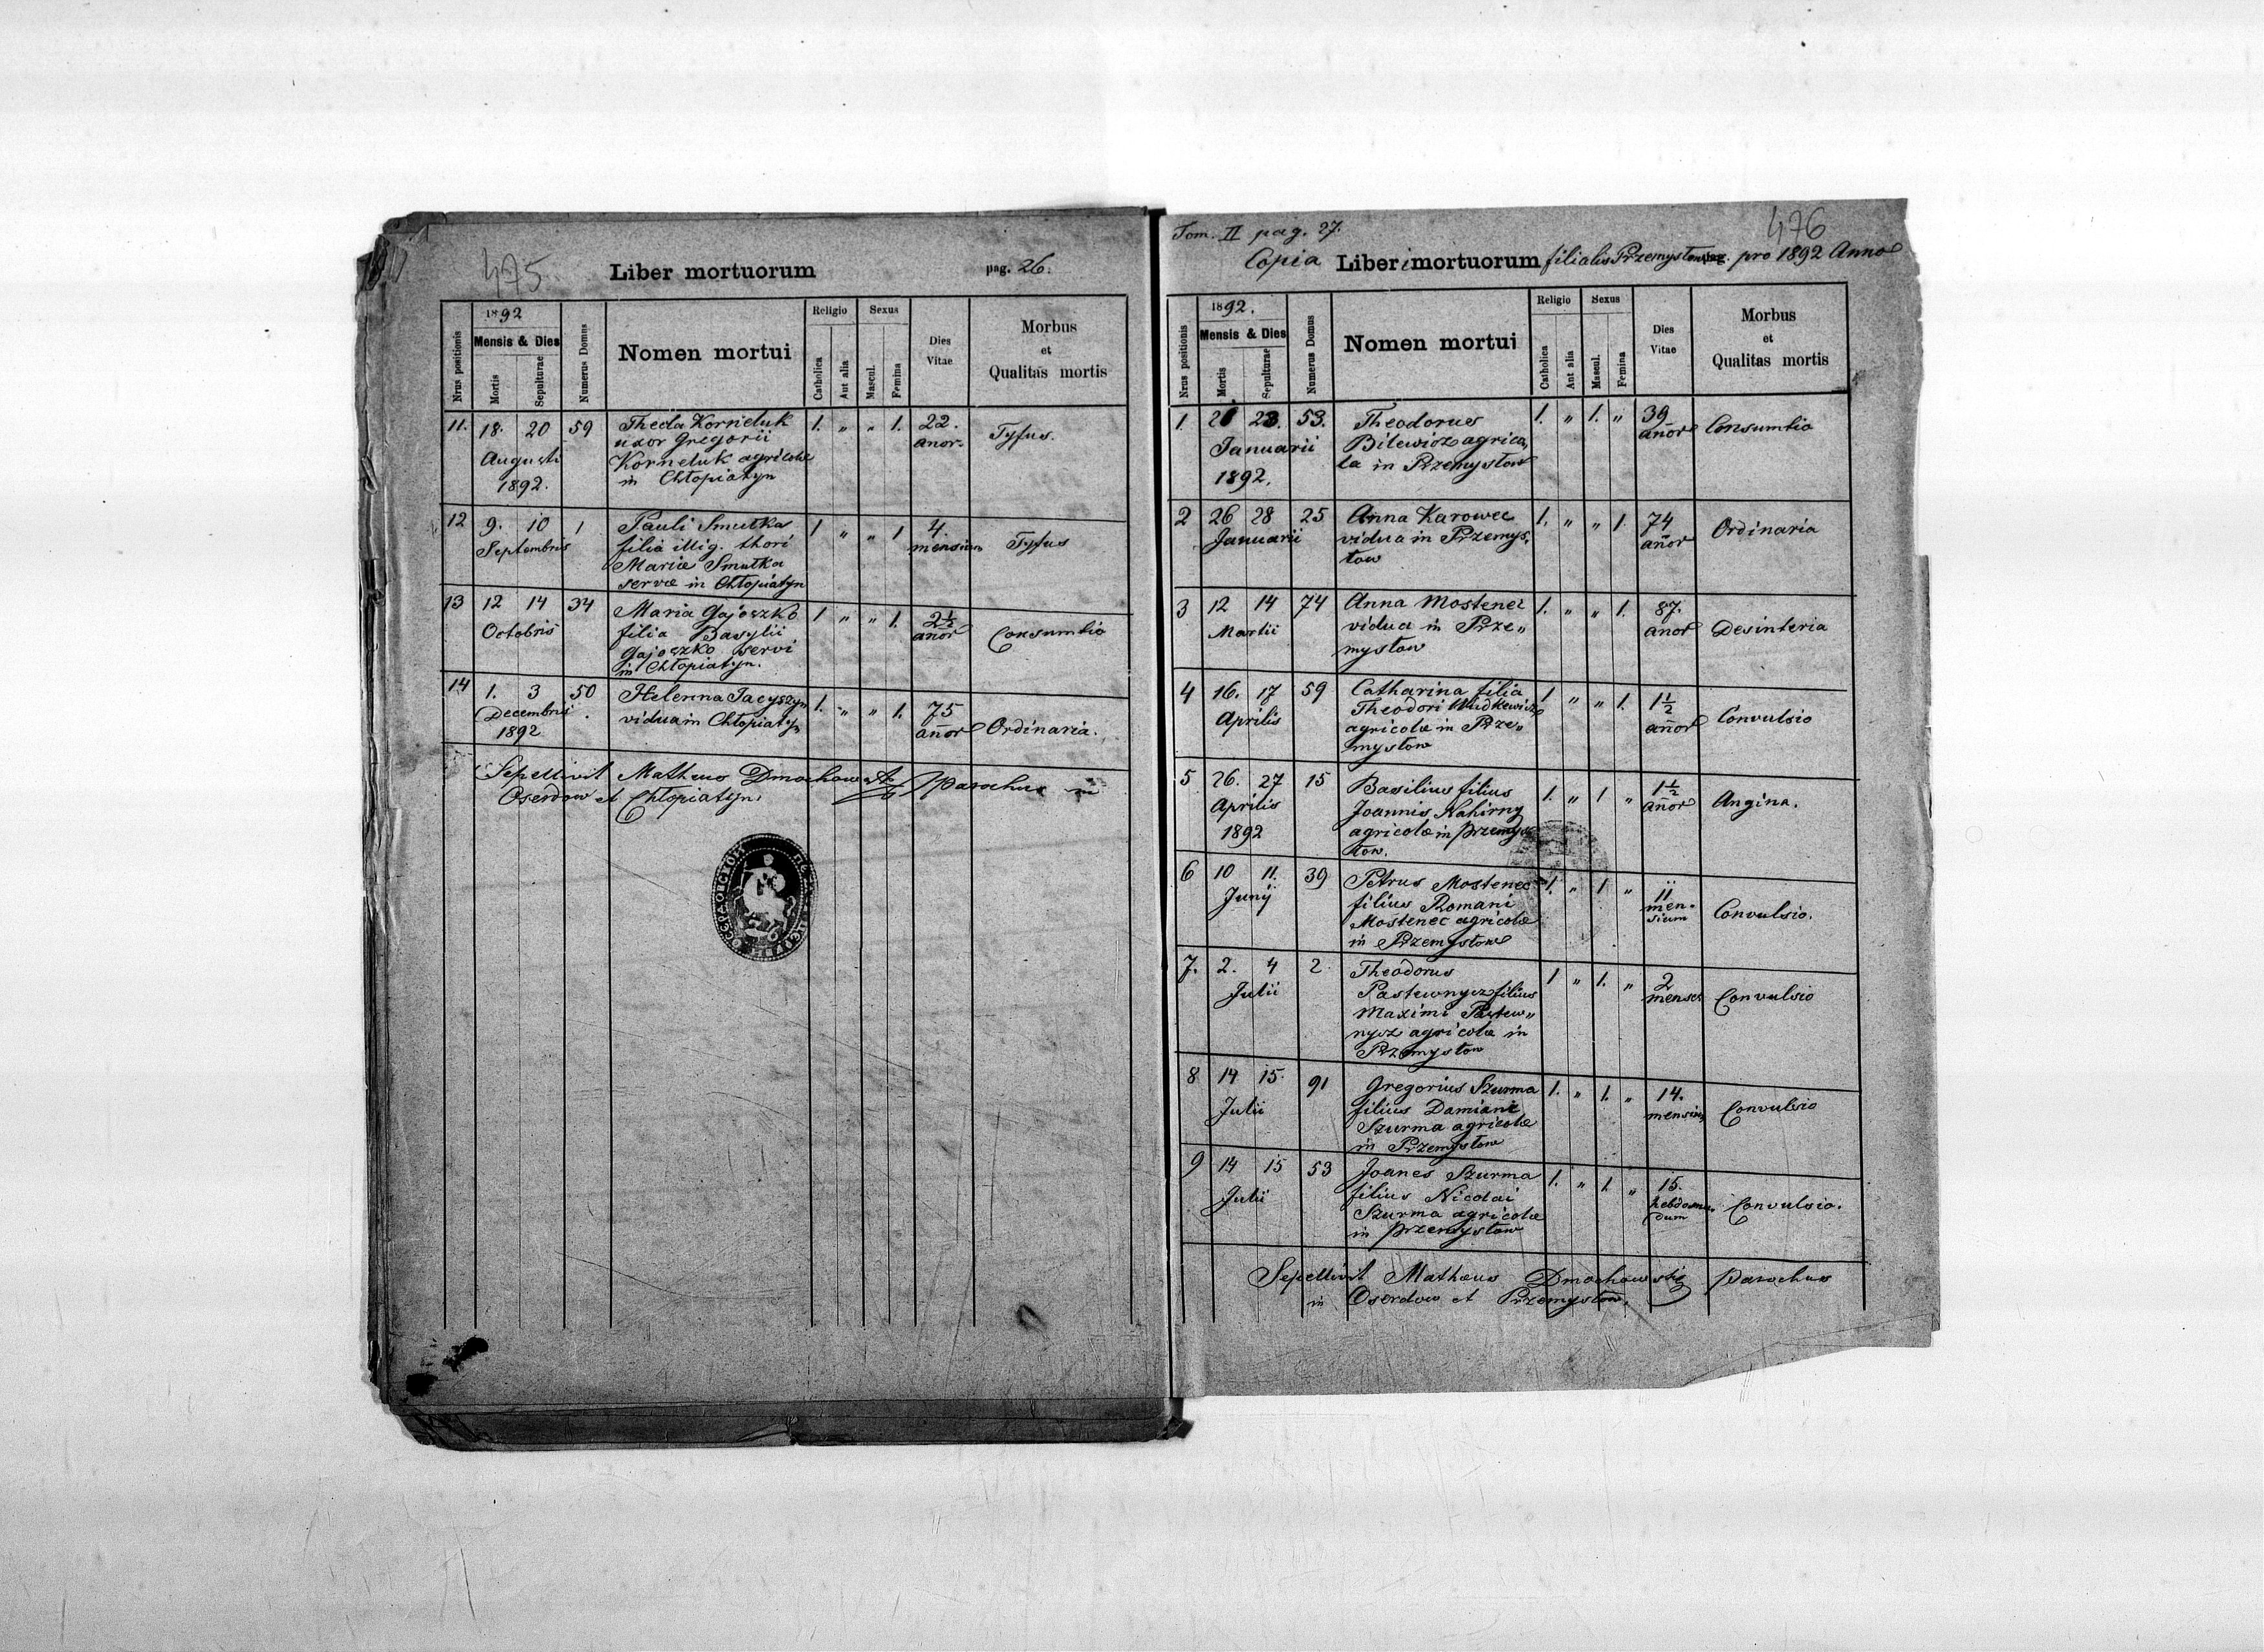 475
Liber mortuorum pag. 26.
Nrus positionis
1892
Mensis & Dies
Mortis
Sepulturae
Numerus Domus
Nomen mortui
Religio
Catholica
Aut alia
Sexus
Mascul.
Femina
Dies
Vitae
Morbus
et
Qualitas mortis
11. 18. 20 59 Thecla Korneluk 1. " " 1. 22. Tyfus.
uxor Gregorii anor.
Augusti Korneluk agricolae
1892. in Chłopiatyn
12 9. 10 1 Pauli Smutka 1 " " 1 4. Tyfus
Septembris filia illig. thori mensium
Mariae Smutka
servae in Chłopiatyn
13 12 14 34 Maria Gajoszko 1 " " 1. 2 1/2 Consumtio
Octobris filia Basylii añor
Gajoszko servi
in Chłopiatyn.
14 1. 3 50 Helenna Jacyszyn 1. " " 1. 75 Ordinaria.
Decembris vidua in Chłopiatyn añor
1892
Sepellivit Matheus Dmochowski Parochus in
Oserdow et Chłopiatyn.
476
Tom. II pag. 27.
Copia Liberi mortuorum filialis Przemysłow pro 1892 Anno
Nrus positionis
1892.
Mensis & Dies
Mortis
Sepulturae
Numerus Domus
Nomen mortui
Religio
Catholica
Aut alia
Sexus
Mascul.
Femina
Dies
Vitae
Morbus
et
Qualitas mortis
1. 23. 53. Theodorus 1. " 1. " 39 Consumtio
Januarii Bilewicz agrico, añor
1892. la in Przemysłow
2 26 28 25 Anna Karowec 1. " " 1. 74 Ordinaria
Januarii vidua in Przemys, añor
łow
3 12 14 74 Anna Mostenec 1. " " 1. 87. Desinteria
Martii vidua in Prze" anor
mysłow
4 16. 17 59 Catharina filia 1 " " 1. 1 1/2 Convulsio
Aprilis Theodori Wudkewicz añor
agricolae in Prze"
mysłow
5 26. 27 15 Basilius filius 1. " 1 " 1 1/2 Angina.
Aprilis Joannis Nahirny añor
1892 agricolae in Przemys
łow.
6 10 11. 39 Petrus Mostenec 1. " 1 " 11 Convulsio.
Junij filius Romani men-
Mostenec agricolae sium
in Przemysłow
7. 2. 4 2 Theodorus 1 " 1. " 2 Convulsio
Julii Pastewnycz filius menses
Maximi Pastew"
nycz agricolae in
Przemysłow
8 14 15. 91 Gregorius Szurma 1. " 1. " 14. Convulsio
Julii filius Damiani mensium
Szurma agricolae
in Przemysłow
9 14 15 53 Joanes Szurma 1. " 1. " 15. Convulsio.
Julii filius Nicolai hebdoma-
Szurma agricolae dum
in Przemysłow
Sepellivit Matheus Dmochowski Parochus
in Oserdow et Przemysłow.